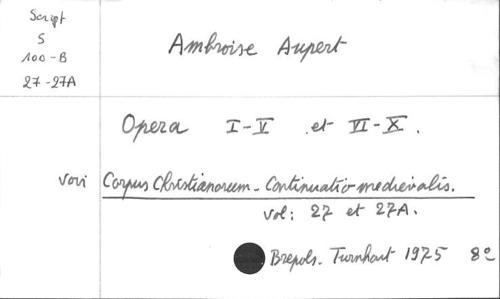 Script
S
100-B
27-27A
Ambroise Aupert
Opera I-V et VI-X.
voir Corpus Christianorum - Continuatio medievalis.
vol: 27 et 27A.
Brepols. Turnhout 1975 8º